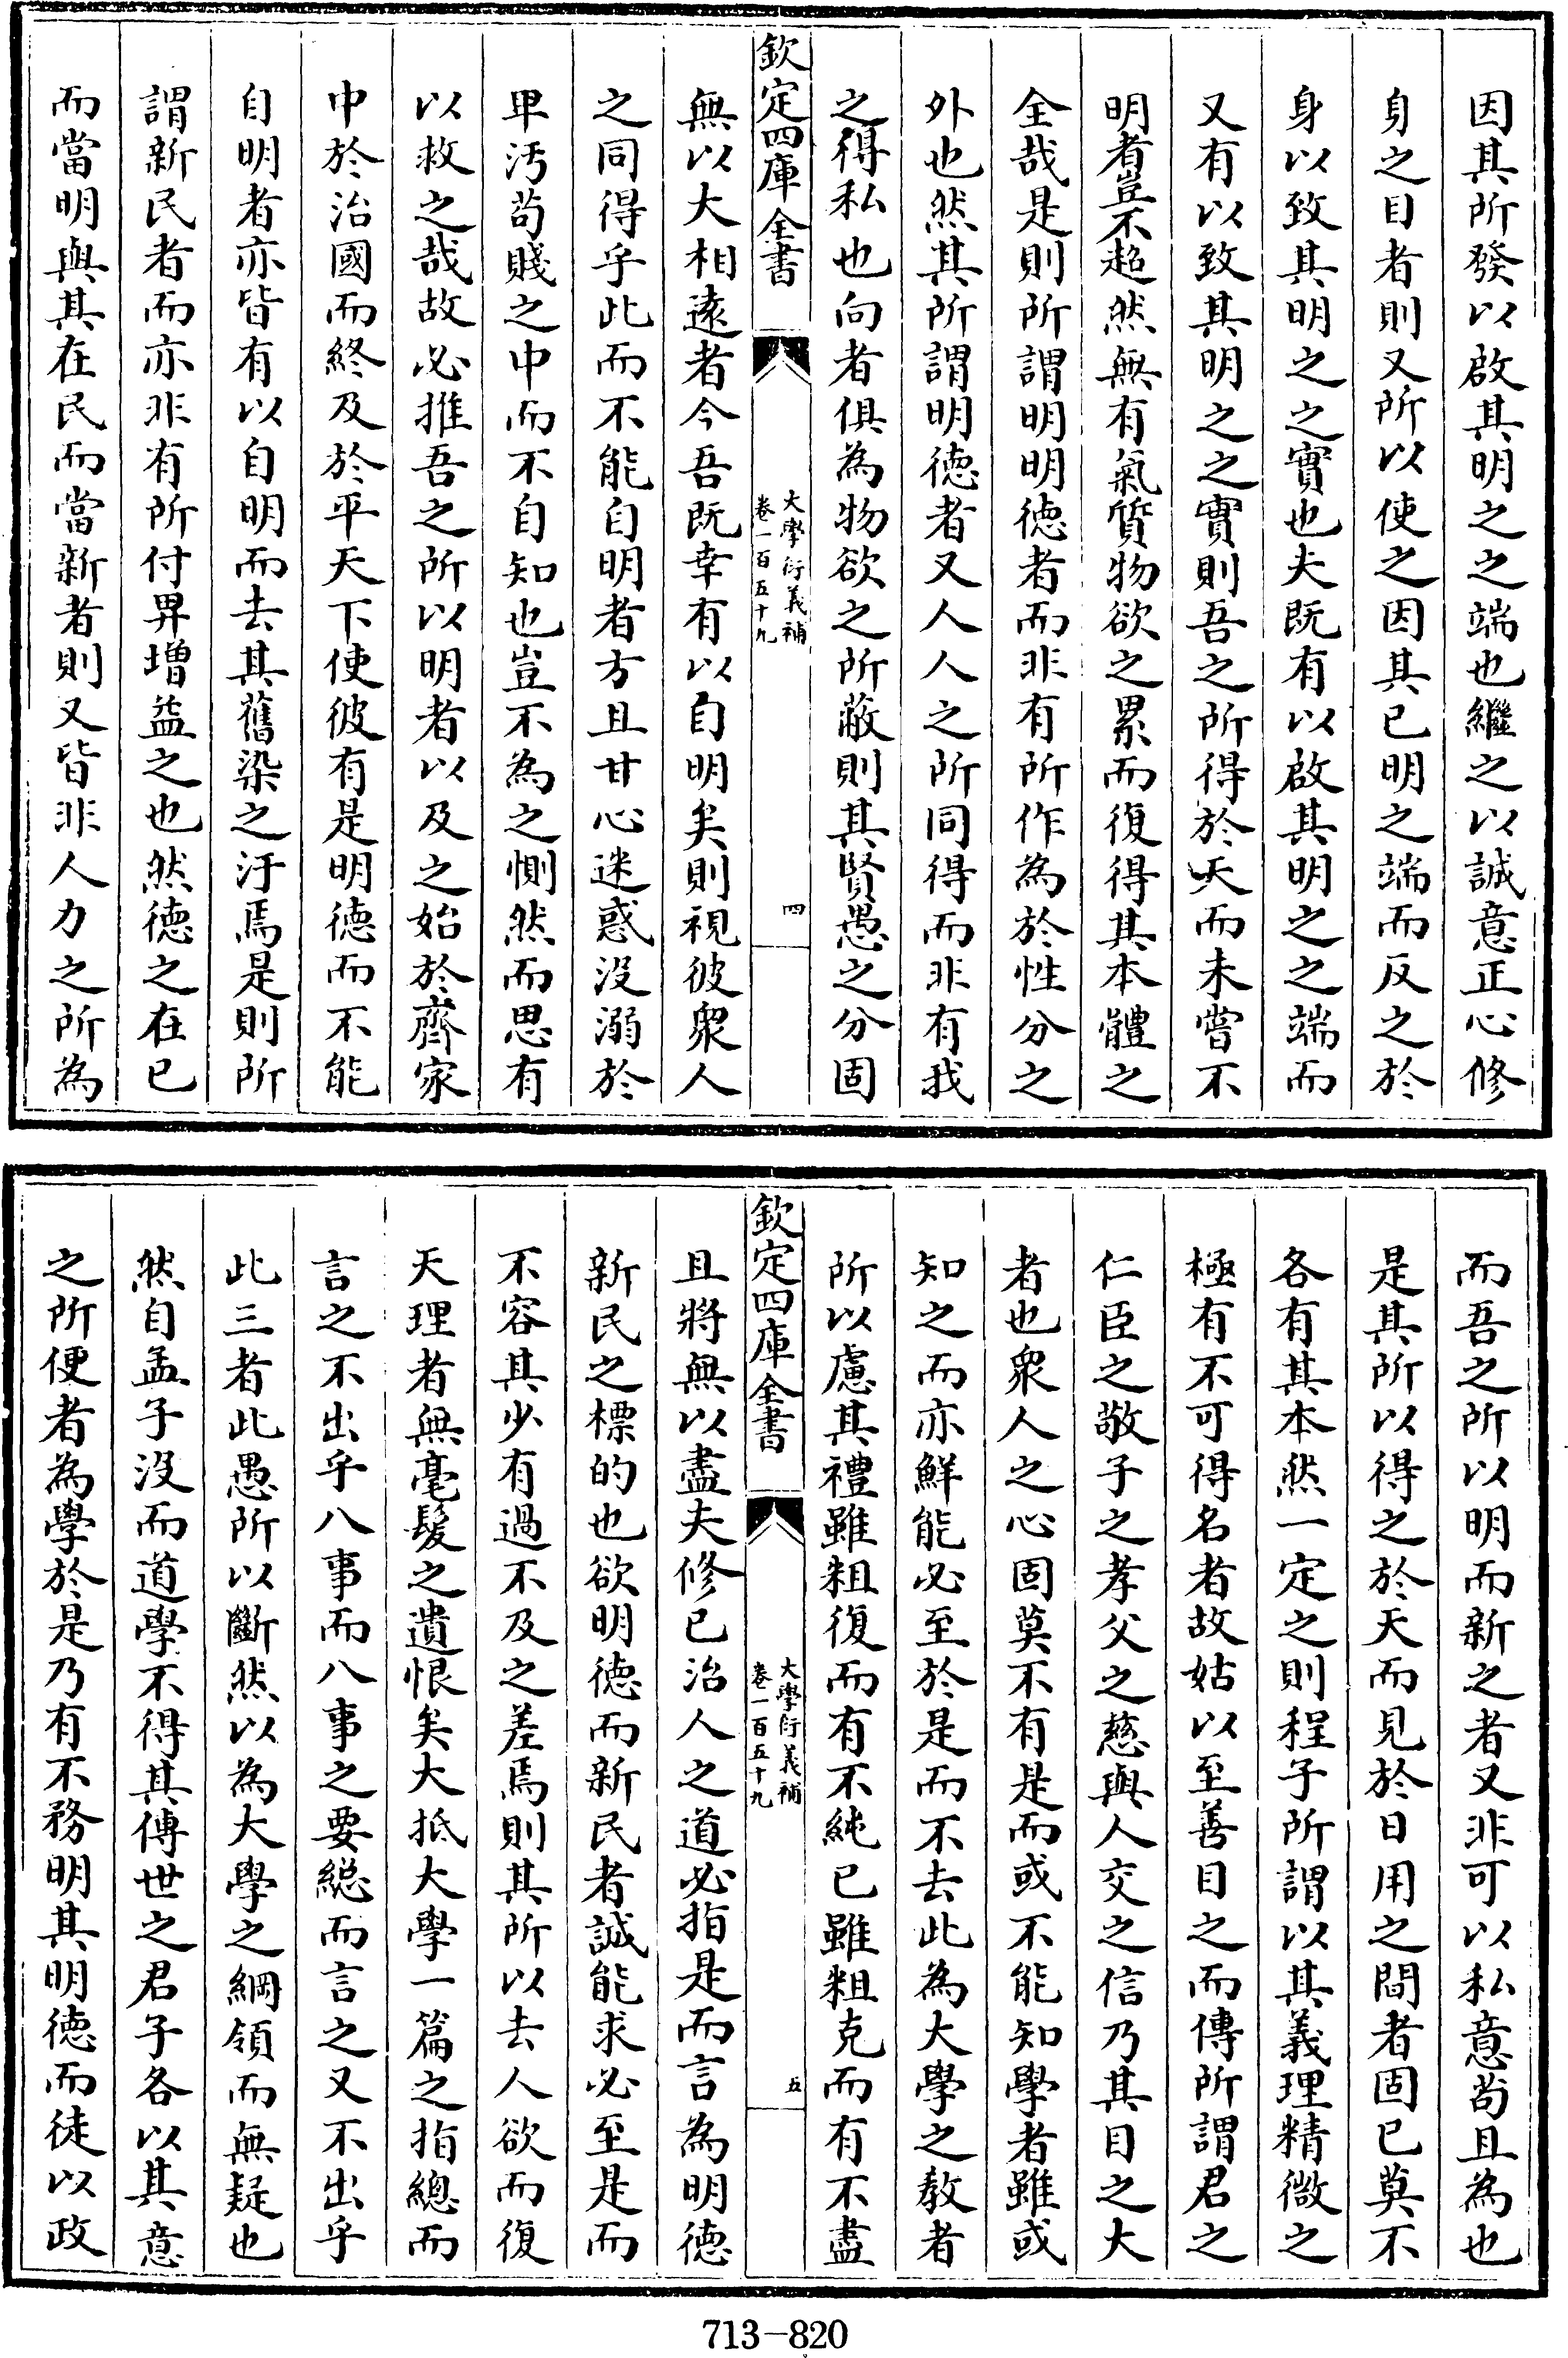 因其所發以啟其明之之端也繼之以誠意正心修
身之目者則又所以使之因其已明之端而反之於
身以致其明之之實也夫既有以啟其明之之端而
又有以致其明之之實則吾之所得於天而未嘗不
明者豈不超然無有氣質物欲之累而復得其本體之
全哉是則所謂明明德者而非有所作為於性分之
外也然其所謂明德者又人人之所同得而非有我
之得私也向者俱為物欲之所蔽則其賢愚之分固
欽定四庫全書
大學衍義補
卷一百五十九
四
無以大相遠者今吾既幸有以自明矣則視彼衆人
之同得乎此而不能自明者方且甘心迷惑没溺於
卑汚苟賤之中而不自知也豈不為之惻然而思有
以救之哉故必推吾之所以明者以及之始於齊家
中於治國而終及於平天下使彼有是明德而不能
自明者亦皆有以自明而去其舊染之汙焉是則所
謂新民者而亦非有所付畀增益之也然德之在己
而當明與其在民而當新者則又皆非人力之所為
而吾之所以明而新之者又非可以私意苟且為也
是其所以得之於天而見於日用之間者固已莫不
各有其本然一定之則程子所謂以其義理精微之
極有不可得名者故姑以至善目之而傳所謂君之
仁臣之敬子之孝父之慈與人交之信乃其目之大
者也衆人之心固莫不有是而或不能知學者雖或
知之而亦鮮能必至於是而不去此為大學之教者
所以慮其禮雖粗復而有不純已雖粗克而有不盡
欽定四庫全書
大學衍義補
卷一百五十九
五
且將無以盡夫修已治人之道必指是而言為明德
新民之標的也欲明德而新民者誠能求必至是而
不容其少有過不及之差焉則其所以去人欲而復
天理者無毫髮之遺恨矣大抵大學一篇之指總而
言之不出乎八事而八事之要總而言之又不出乎
此三者此愚所以斷然以為大學之綱領而無疑也
然自孟子没而道學不得其傳世之君子各以其意
之所便者為學於是乃有不務明其明德而徒以政
713-820